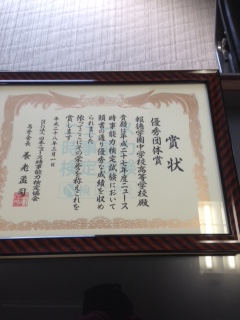 賞状
優秀団体賞
報徳学園中学校高等学校殿
貴校は平成二十七年度ニュース
時事能力検定試験において
頭書の通り優秀な成績を収め
られました
依ってここにその栄誉を称えこれを
賞します
平成二十八年三月一日
日本ニュース時事能力検定協会
名誉会長 養老孟司